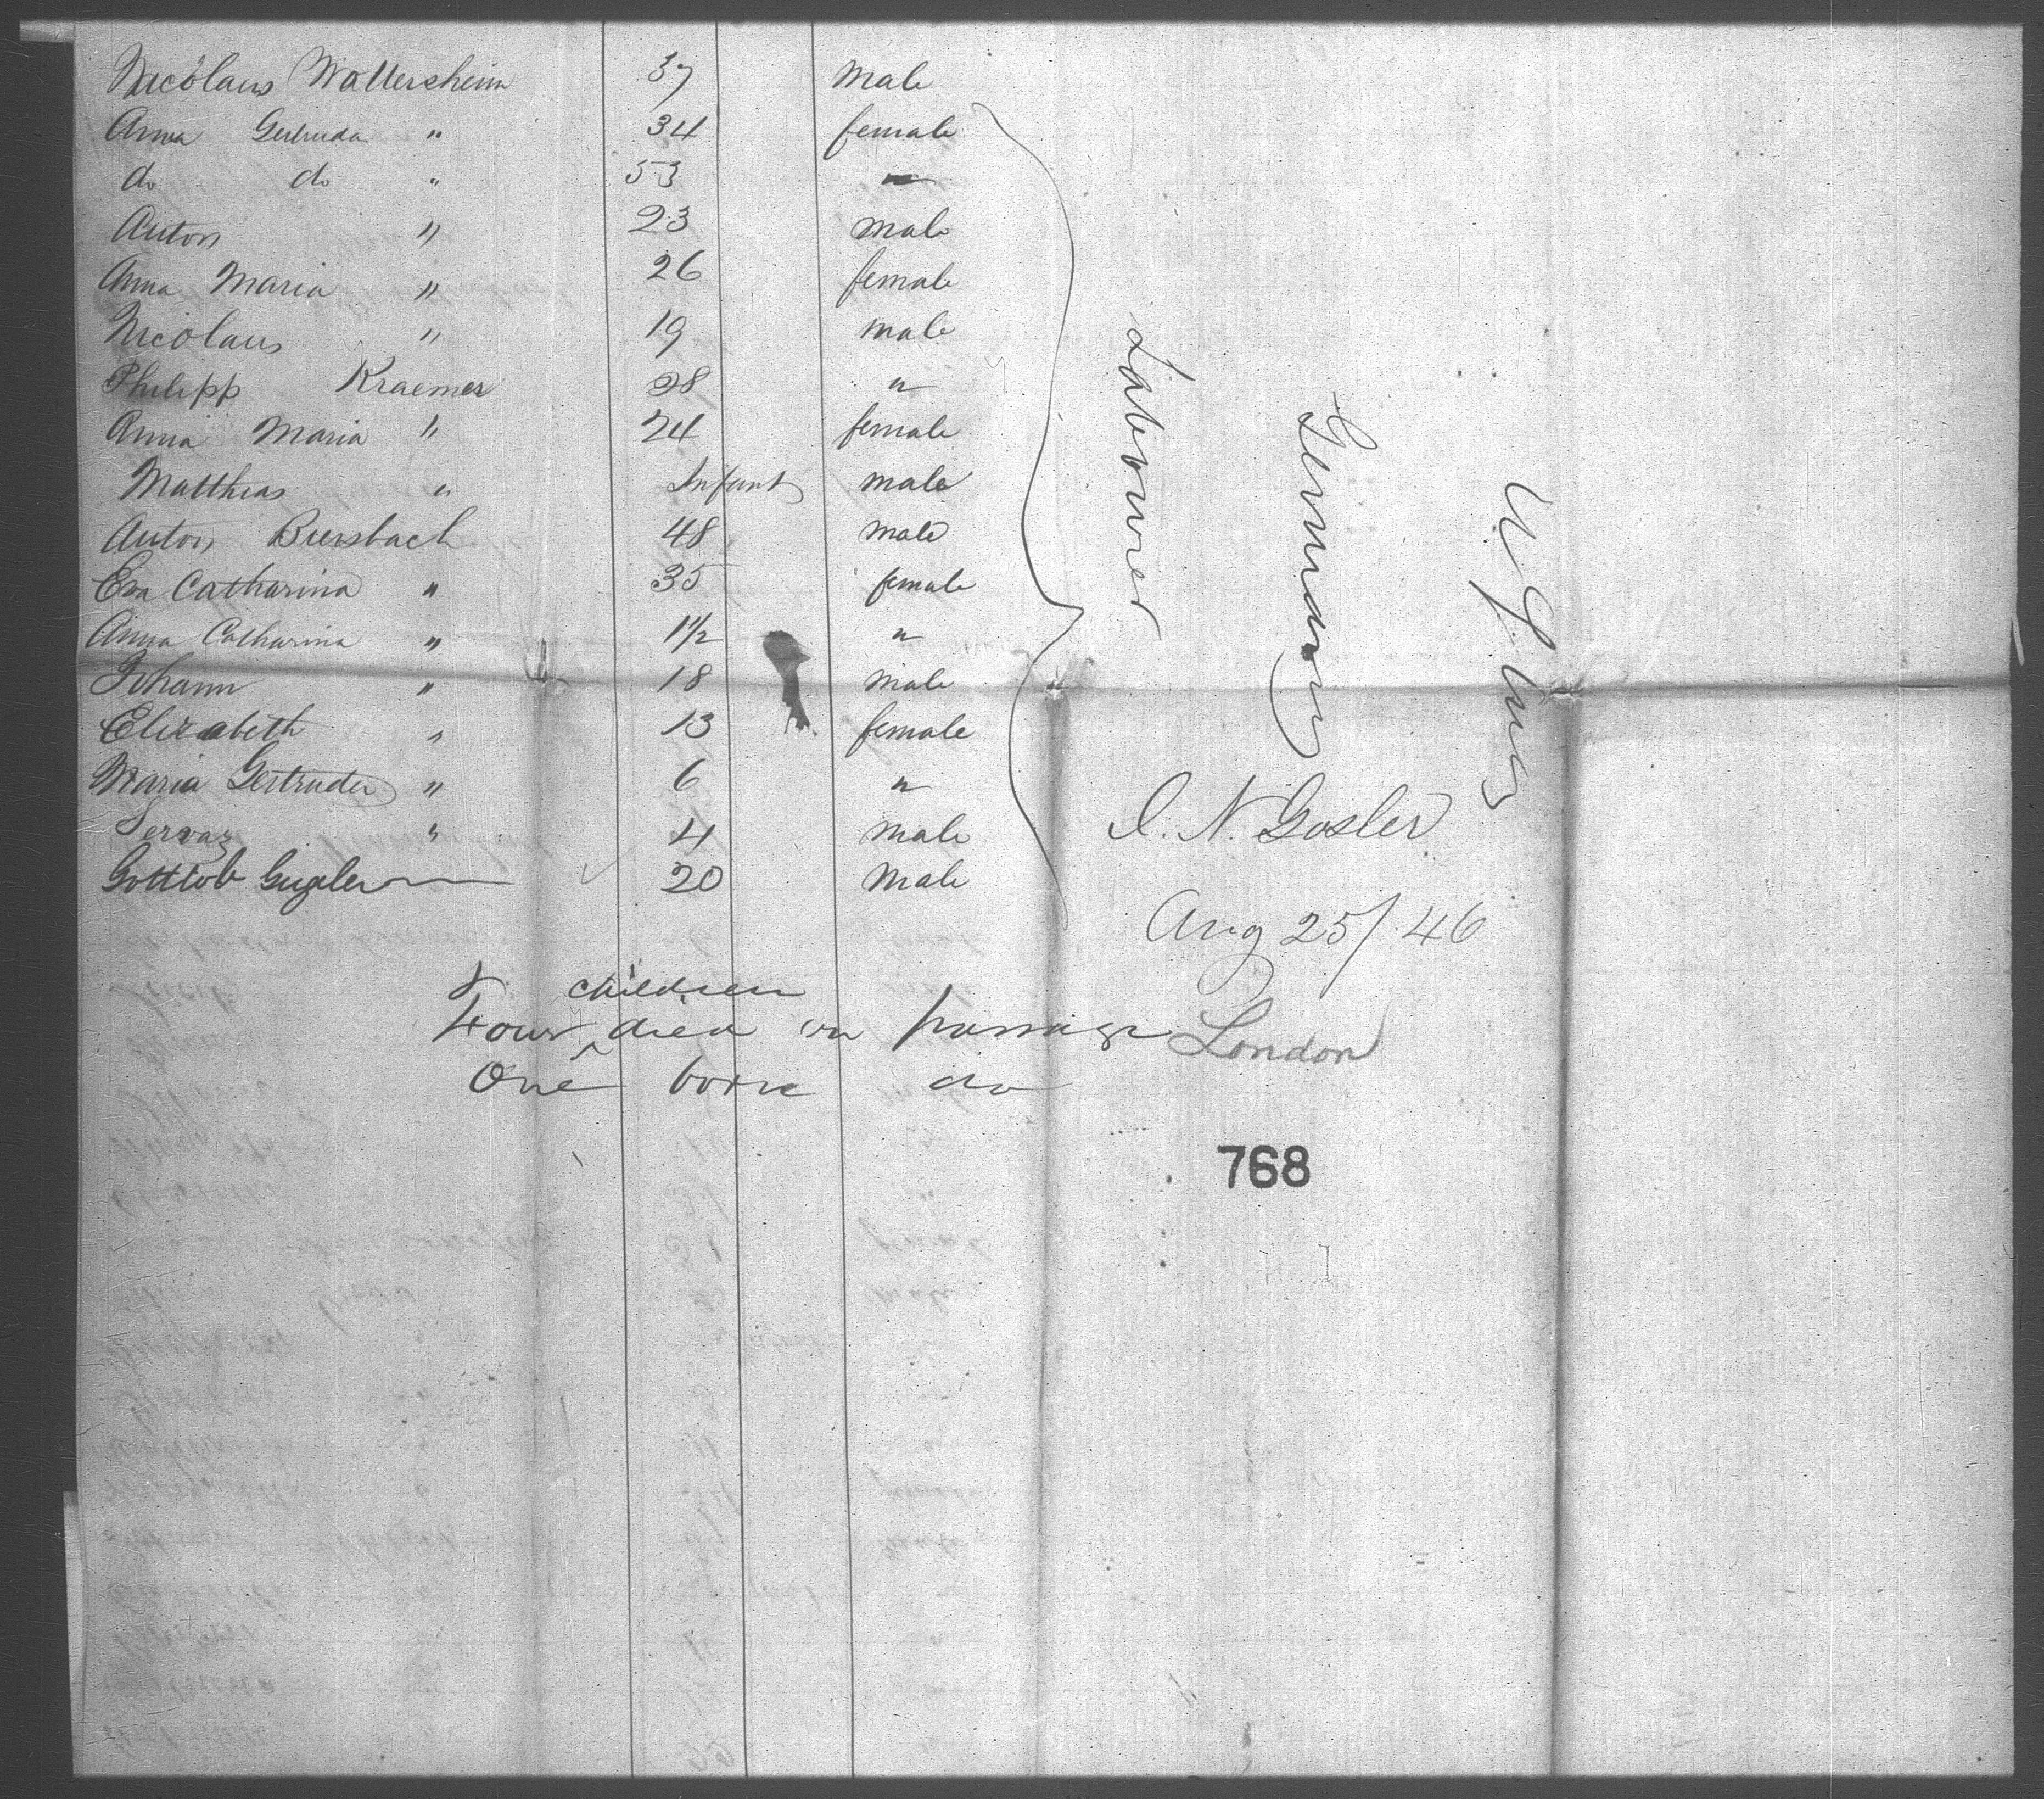 Nicolaus Wallersheim 37 Male
Anna Gertruda " 34 female
do do " 53 "
Anton " 23 male
Anna Maria " 26 female
Nicolaus " 19 male
Philipp Kraemer 28 "
Anna Maria " 24 female
Matthias " Infant male
Anton Biersbach 48 male
Eva Catharina " 35 female
Anna Catharina " 1 1/2 "
Johann " 18 male
Elizabeth " 13 female
Maria Gertruder " 6 "
Servaz " 4 male
Gottlob Gugeler 20 Male
Labourer
Germany
U States
I. N. Gosler
Aug 25/46
London
children
Four ^ died on passage
One born do
768